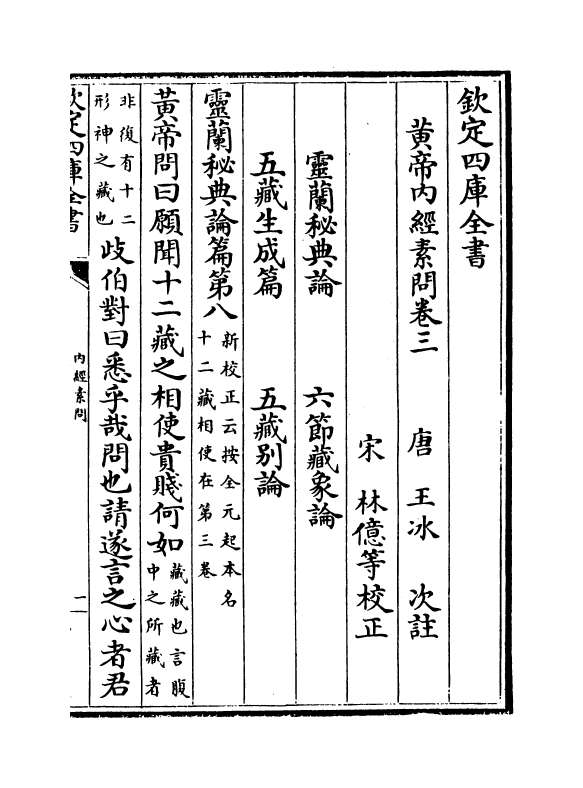 欽定四庫全書
黄帝内經素問卷三
唐 王冰 次註
宋 林億等校正
靈蘭秘典論 六節藏象論
五藏生成篇 五藏别論
靈蘭秘典論篇第八新校正云按全元起本名
十二藏相使在第三卷
黄帝問曰願聞十二藏之相使貴賤何如藏藏也言腹
中之所藏者
非復有十二
形神之藏也岐伯對曰悉乎哉問也請遂言之心者君
欽定四庫全書
内經素問
一